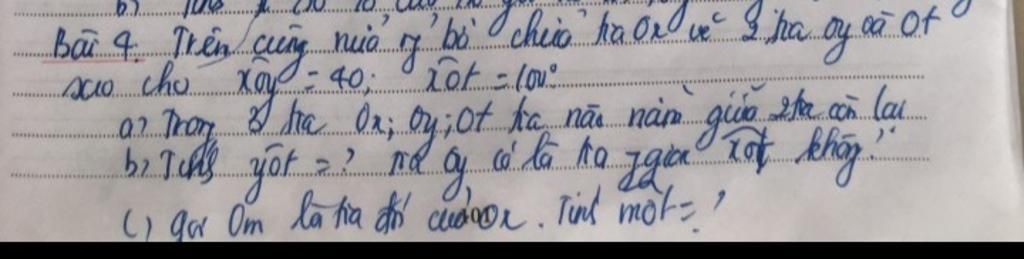 Bài 4. Trên cùng nửa mp bờ chứa tia Ox vẽ 2 tia oy và Ot
sao cho xôy = 40; xôt = 100°
a) Trong 3 tia Ox; Oy; Ot tia nào nằm giữa 2 tia còn lại
b) Tính yôt = ? tia Oy có là tia pgiác xôt không?
c) gọi Om là tia đối của Ox. Tính môt = ?